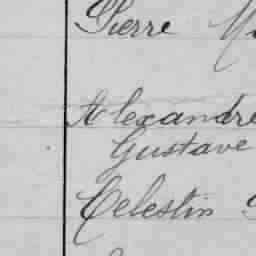 Pierre
Alexandre
Gustave
Celestin